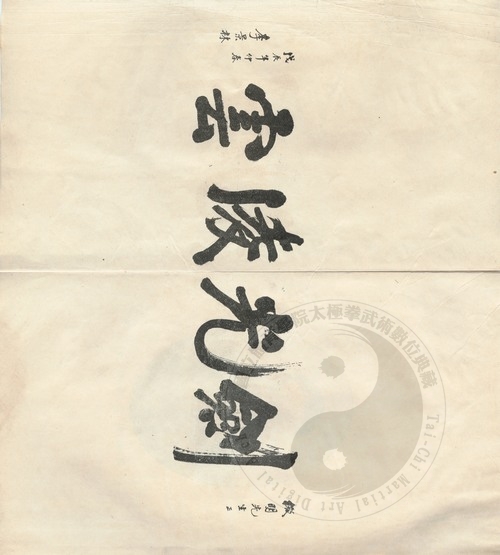 微明先生正
劍光陵雲
戊辰年仲春
李景林
院太極拳武術數位典藏
Tai-Chi Martial Art Digital